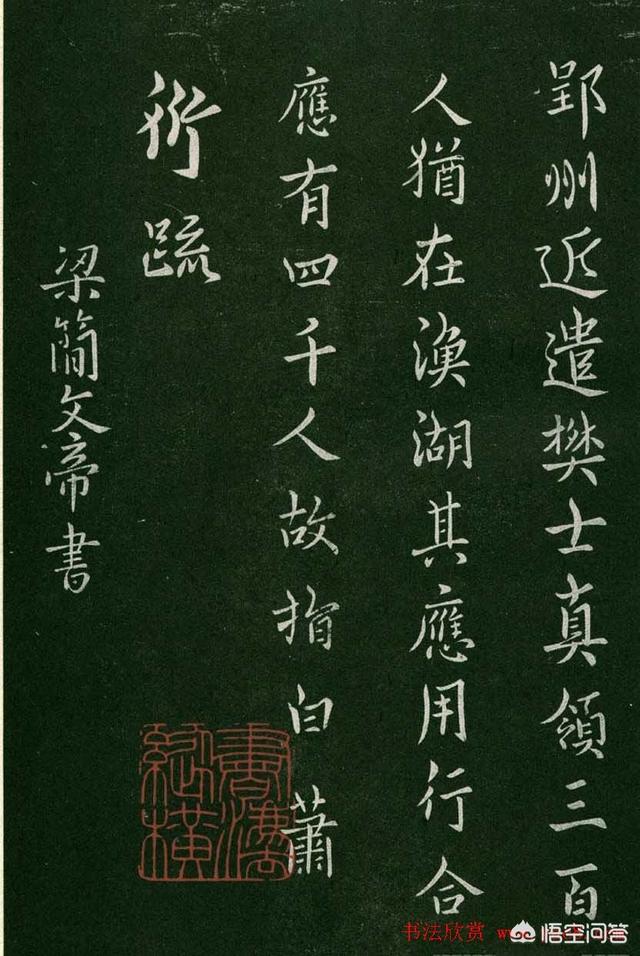 郢州近遣樊士真領三百
人猶在渙湖其應用行合
應有四千人故指白蕭
衍疏
梁簡文帝書
书法欣赏
悟空问答